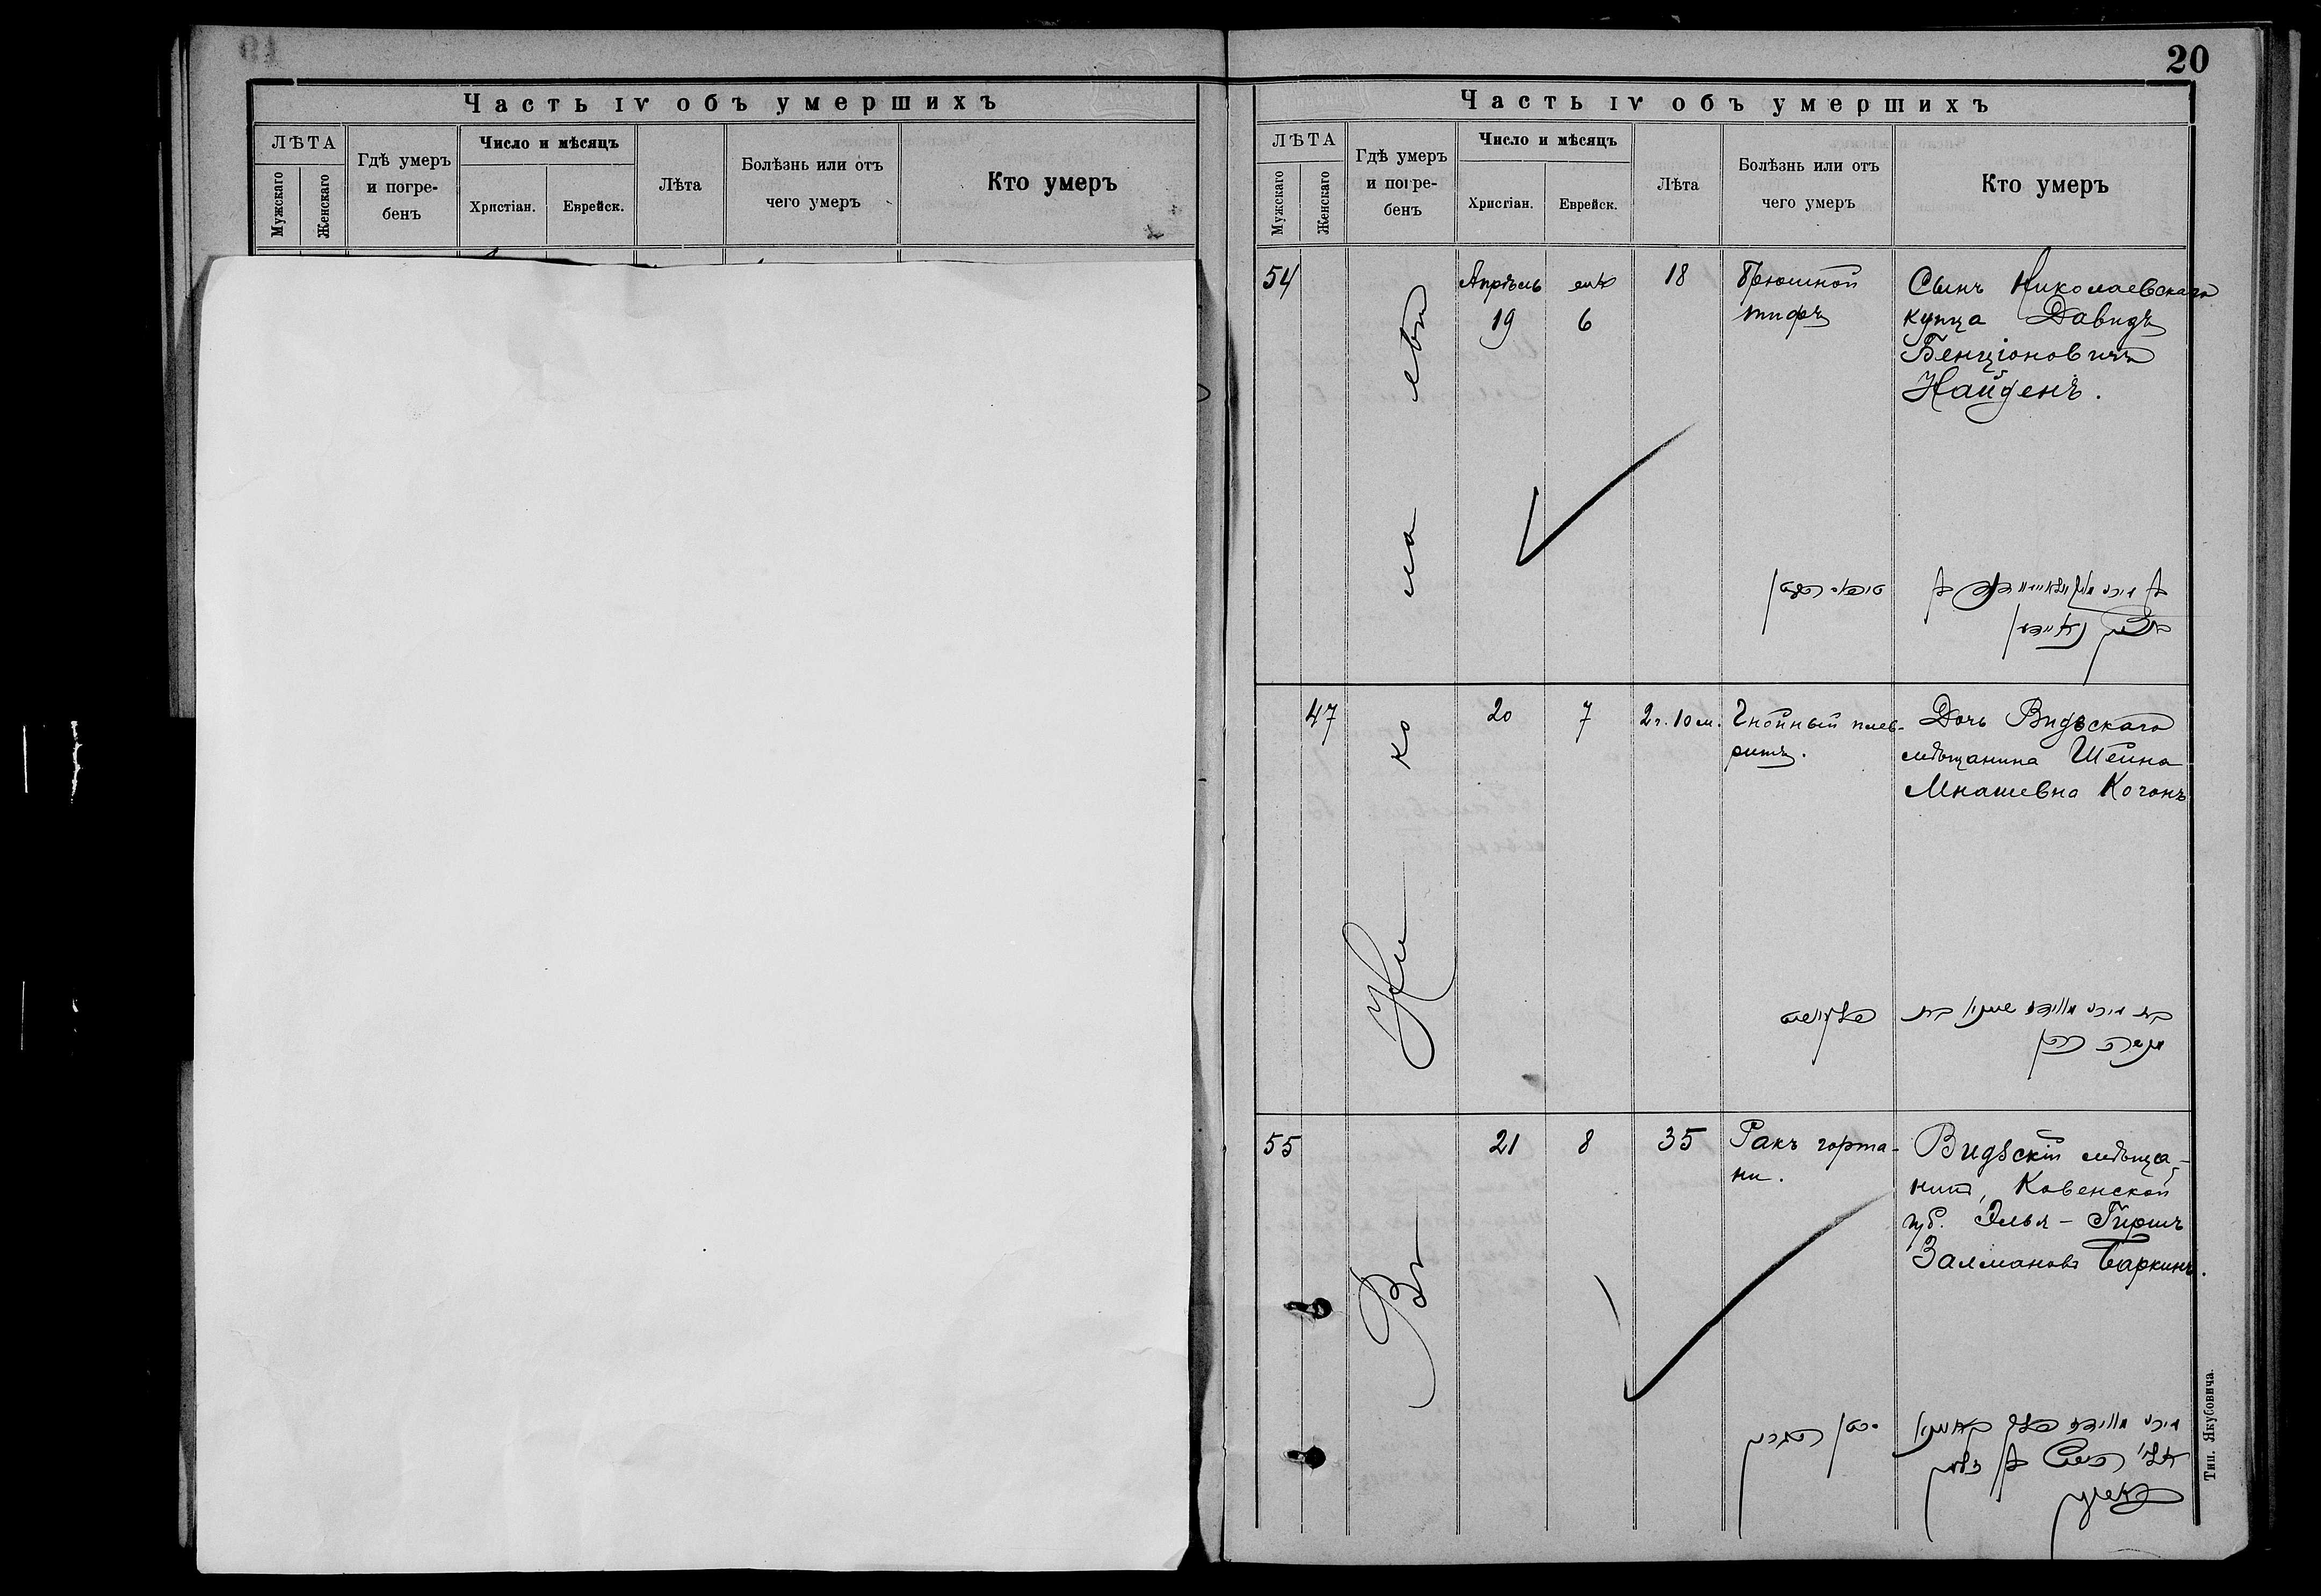 20
Часть IV объ умершихъ
ЛѢТА
Мужскаго
Женскаго
Гдѣ умеръ
и погре-
бенъ
Число и мѣсяцъ
Христіан.
Еврейск.
Лѣта
Болѣзнь или отъ
чего умеръ
Кто умеръ
Часть IV объ умершихъ
ЛѢТА
Мужскаго
Женскаго
Гдѣ умеръ
и погре-
бенъ
Число и мѣсяцъ
Христіан.
Еврейск.
Лѣта
Болѣзнь или отъ
чего умеръ
Кто умеръ
54
Апрѣль
19
6
18
Брюшной
тифъ
Сынъ Николаевскаго
купца Давидъ
Бенціоновичъ
Найденъ.
47
20
7
2 г. 10 м.
Гнойный плев-
ритъ.
Дочь Видзскаго
мѣщанина Шейна
Мнашевна Коганъ
55
21
8
35
Ракъ горта-
ни.
Видзскій мѣща-
нинъ, Ковенской
губ. Элья - Гиршъ
Залмановъ Баркинъ.
Въ
Тип. Якубовича.